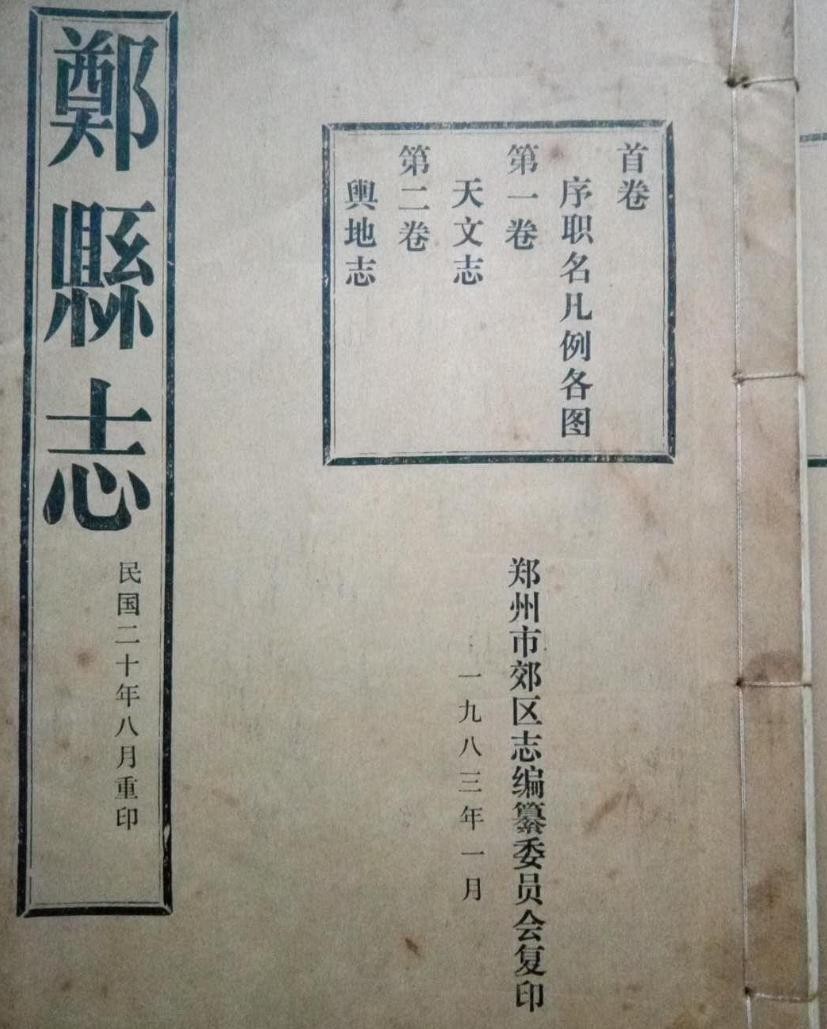 首卷
序职名凡例各图
第一卷
天文志
第二卷
舆地志
郑州市郊区志编纂委员会复印
一九八三年一月
鄭縣志
民国二十年八月重印